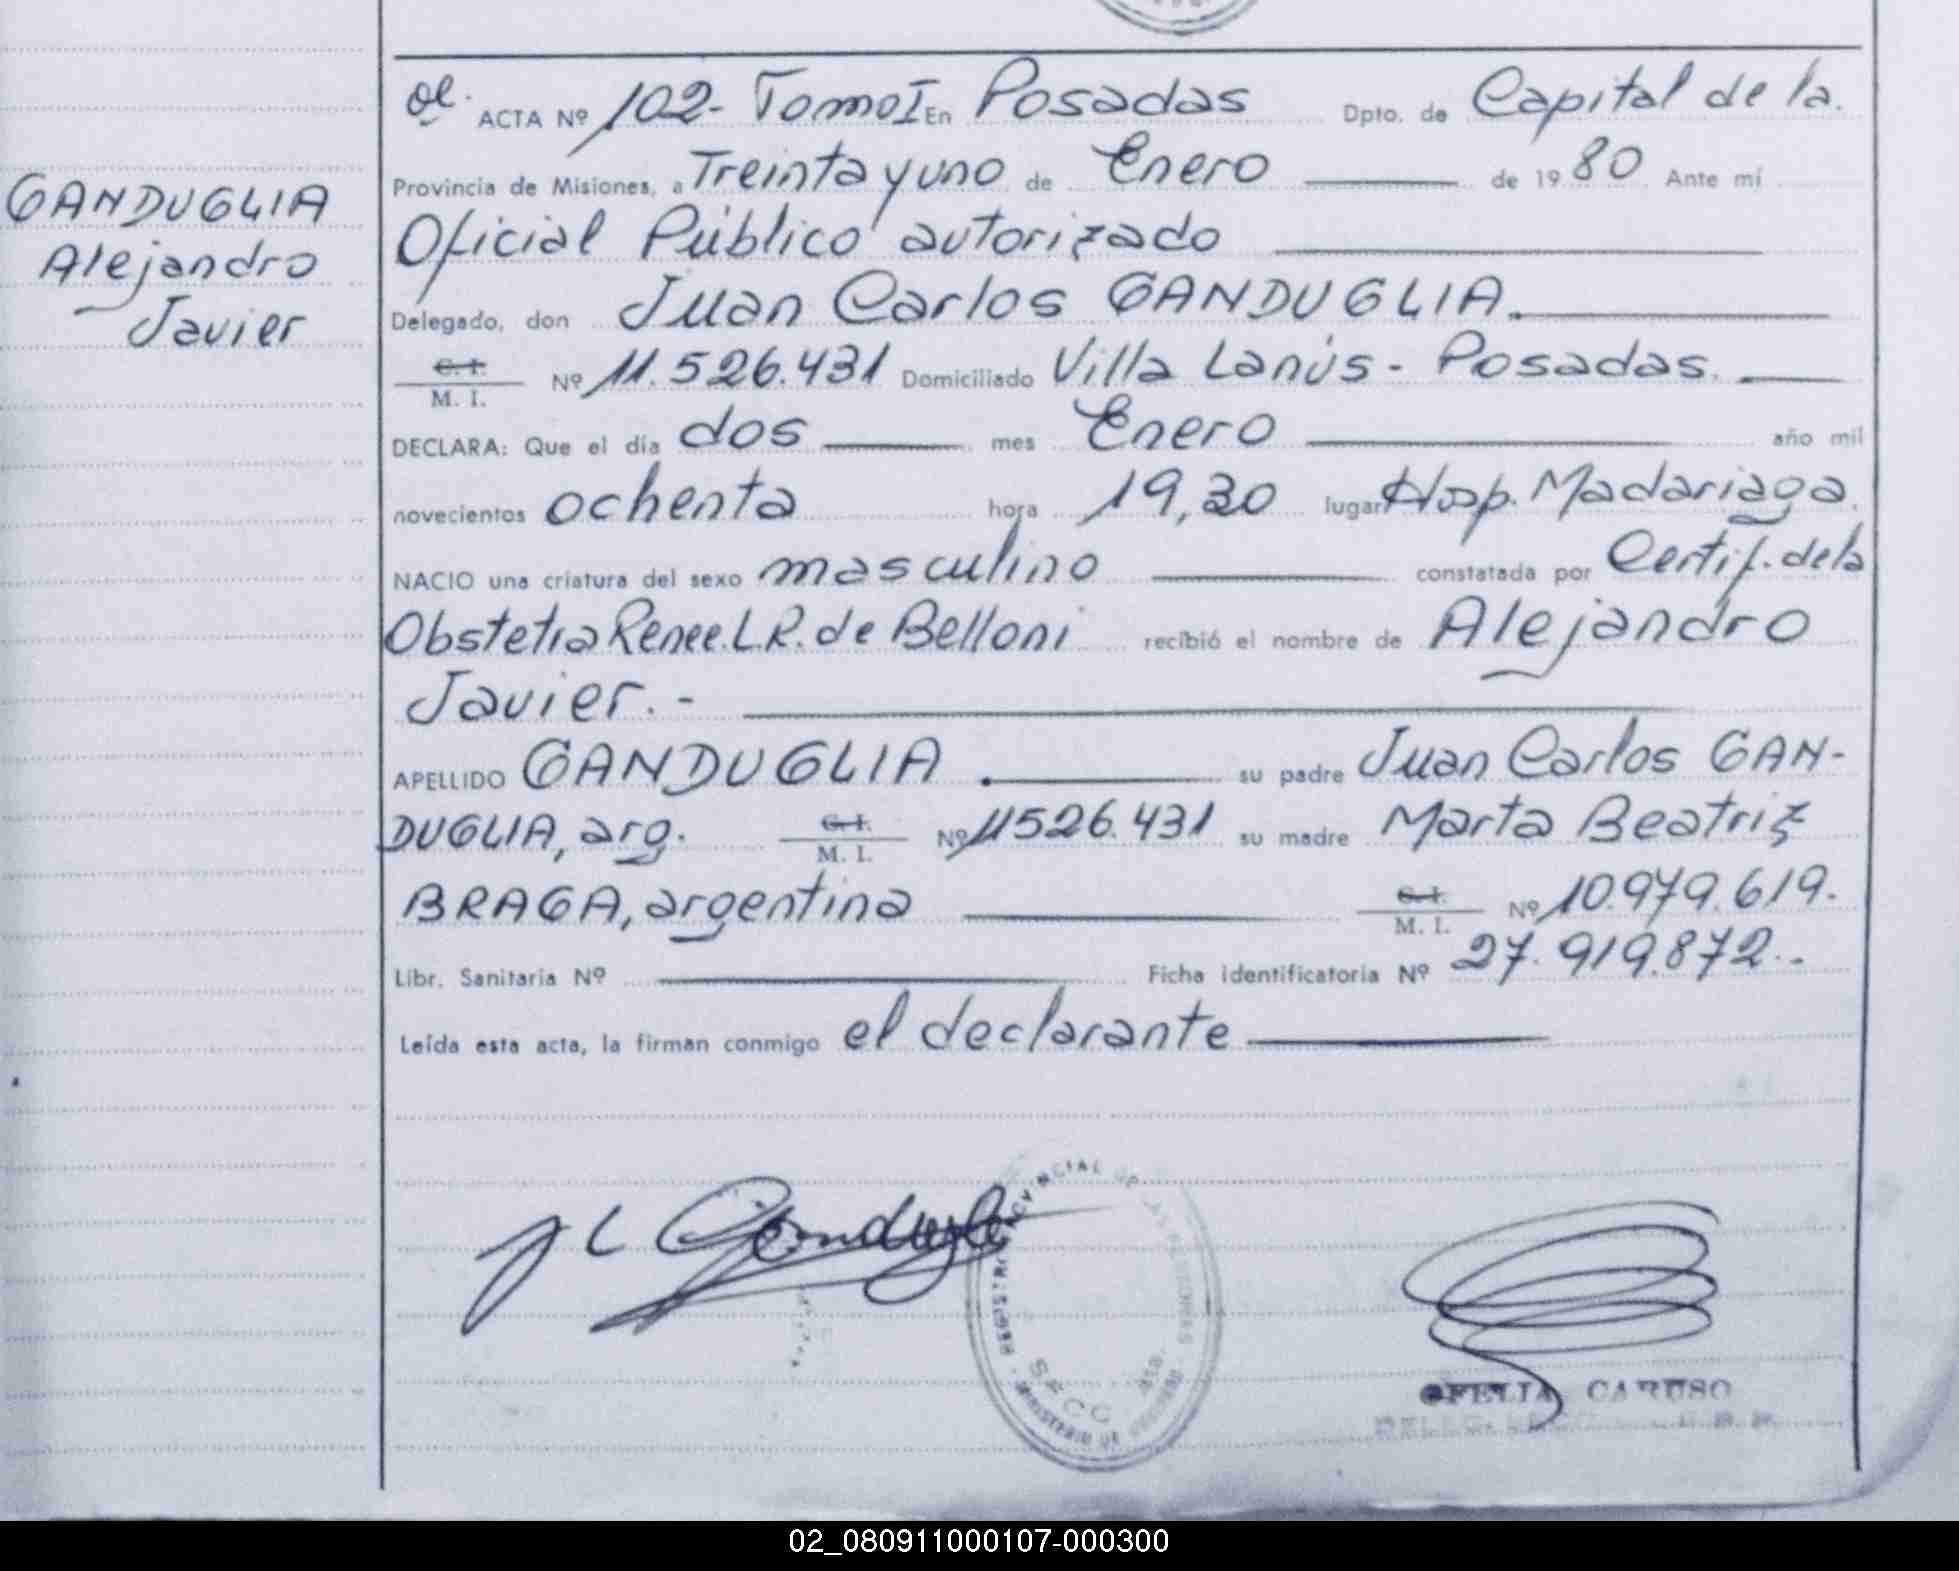 GANDUGLIA
Alejandro
Javier
ACTA Nº 102- Tomo I En Posadas Dpto. de Capital de la.
Provincia de Misiones, a Treinta y uno de Enero de 1980 Ante mí
Oficial Público autorizado
Delegado, don Juan Carlos GANDUGLIA.
C. I.
M. I. Nº 11.526.431 Domiciliado Villa Lanús - Posadas.
DECLARA: Que el día dos mes Enero año mil
novecientos ochenta hora 19,30 lugar Hosp. Madariaga.
NACIO una criatura del sexo masculino constatada por Certif. de la
Obstetra Renee. L.R. de Belloni recibió el nombre de Alejandro
Javier. -
APELLIDO GANDUGLIA su padre Juan Carlos GAN-
DUGLIA, arg. C. I.
M. I. Nº 11526.431 su madre Marta Beatriz
BRAGA, argentina C. I.
M. I. Nº 10.979.619.
Libr. Sanitaria Nº Ficha identificatoria Nº 27.919.872..
Leída esta acta, la firman conmigo el declarante
OFELIA CARUSO
02_080911000107-000300